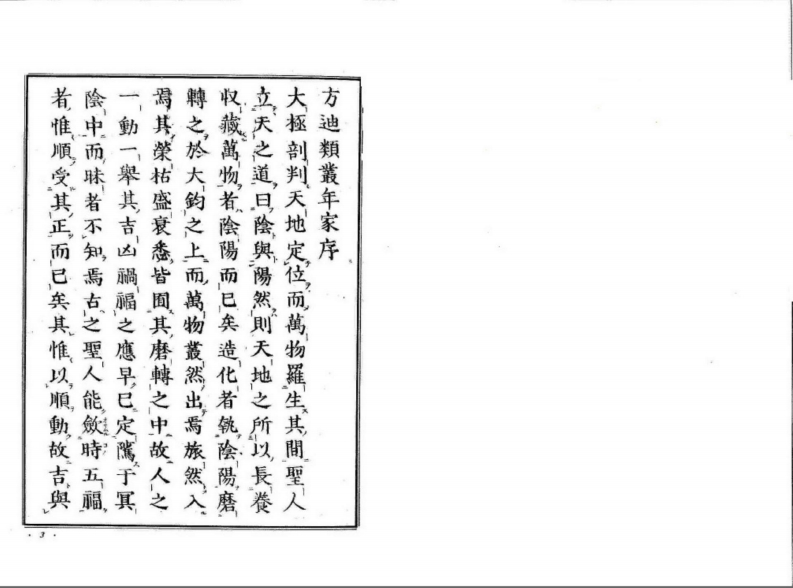 方迪類叢年家序
大極剖判天地定位而萬物羅生其間聖人
立天之道曰陰與陽然則天地之所以長養
収藏萬物者陰陽而已矣造化者執陰陽磨
轉之於大鈞之上而萬物叢然出焉旅然入
焉其榮枯盛衰悉皆囿其磨轉之中故人之
一動一舉其吉凶禍福之應早已定隲于冥
陰中而昧者不知焉古之聖人能斂時五福
者惟順受其正而已矣其惟以順動故吉與
· 3 ·